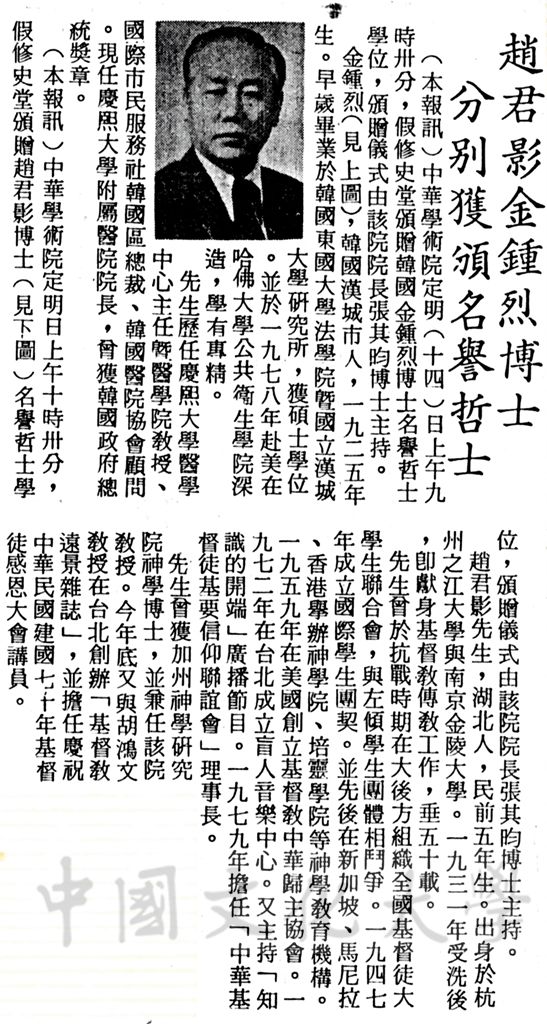 趙君影金鍾烈博士
分別獲頒名譽哲士
（本報訊）中華學術院定明（十四）日上午九
時卅分，假修史堂頒贈韓國金鍾烈博士名譽哲士
學位，頒贈儀式由該院院長張其昀博士主持。
金鍾烈（見上圖），韓國漢城市人，一九二五年
生。早歲畢業於韓國東國大學法學院暨國立漢城
大學研究所，獲碩士學位
。並於一九七八年赴美在
哈佛大學公共衛生學院深
造，學有專精。
先生歷任慶熙大學醫學
中心主任暨醫學院教授、
國際市民服務社韓國區總裁、韓國醫院協會顧問
。現任慶熙大學附屬醫院院長，曾獲韓國政府總
統獎章。
（本報訊）中華學術院定明日上午十時卅分，
假修史堂頒贈趙君影博士（見下圖）名譽哲士學
位，頒贈儀式由該院院長張其昀博士主持。
趙君影先生，湖北人，民前五年生。出身於杭
州之江大學與南京金陵大學。一九三一年受洗後
，卽獻身基督教傳教工作，垂五十載。
先生曾於抗戰時期在大後方組織全國基督徒大
學生聯合會，與左傾學生團體相鬥爭。一九四七
年成立國際學生團契。並先後在新加坡、馬尼拉
、香港舉辦神學院、培靈學院等神學教育機構。
一九五九年在美國創立基督教中華歸主協會。一
九七二年在台北成立盲人音樂中心。又主持「知
識的開端」廣播節目。一九七九年擔任「中華基
督徒基要信仰聯誼會」理事長。
先生曾獲加州神學研究
院神學博士，並兼任該院
教授。今年底又與胡鴻文
教授在台北創辦「基督教
遠景雜誌」，並擔任慶祝
中華民國建國七十年基督
徒感恩大會講員。
中國文化大學